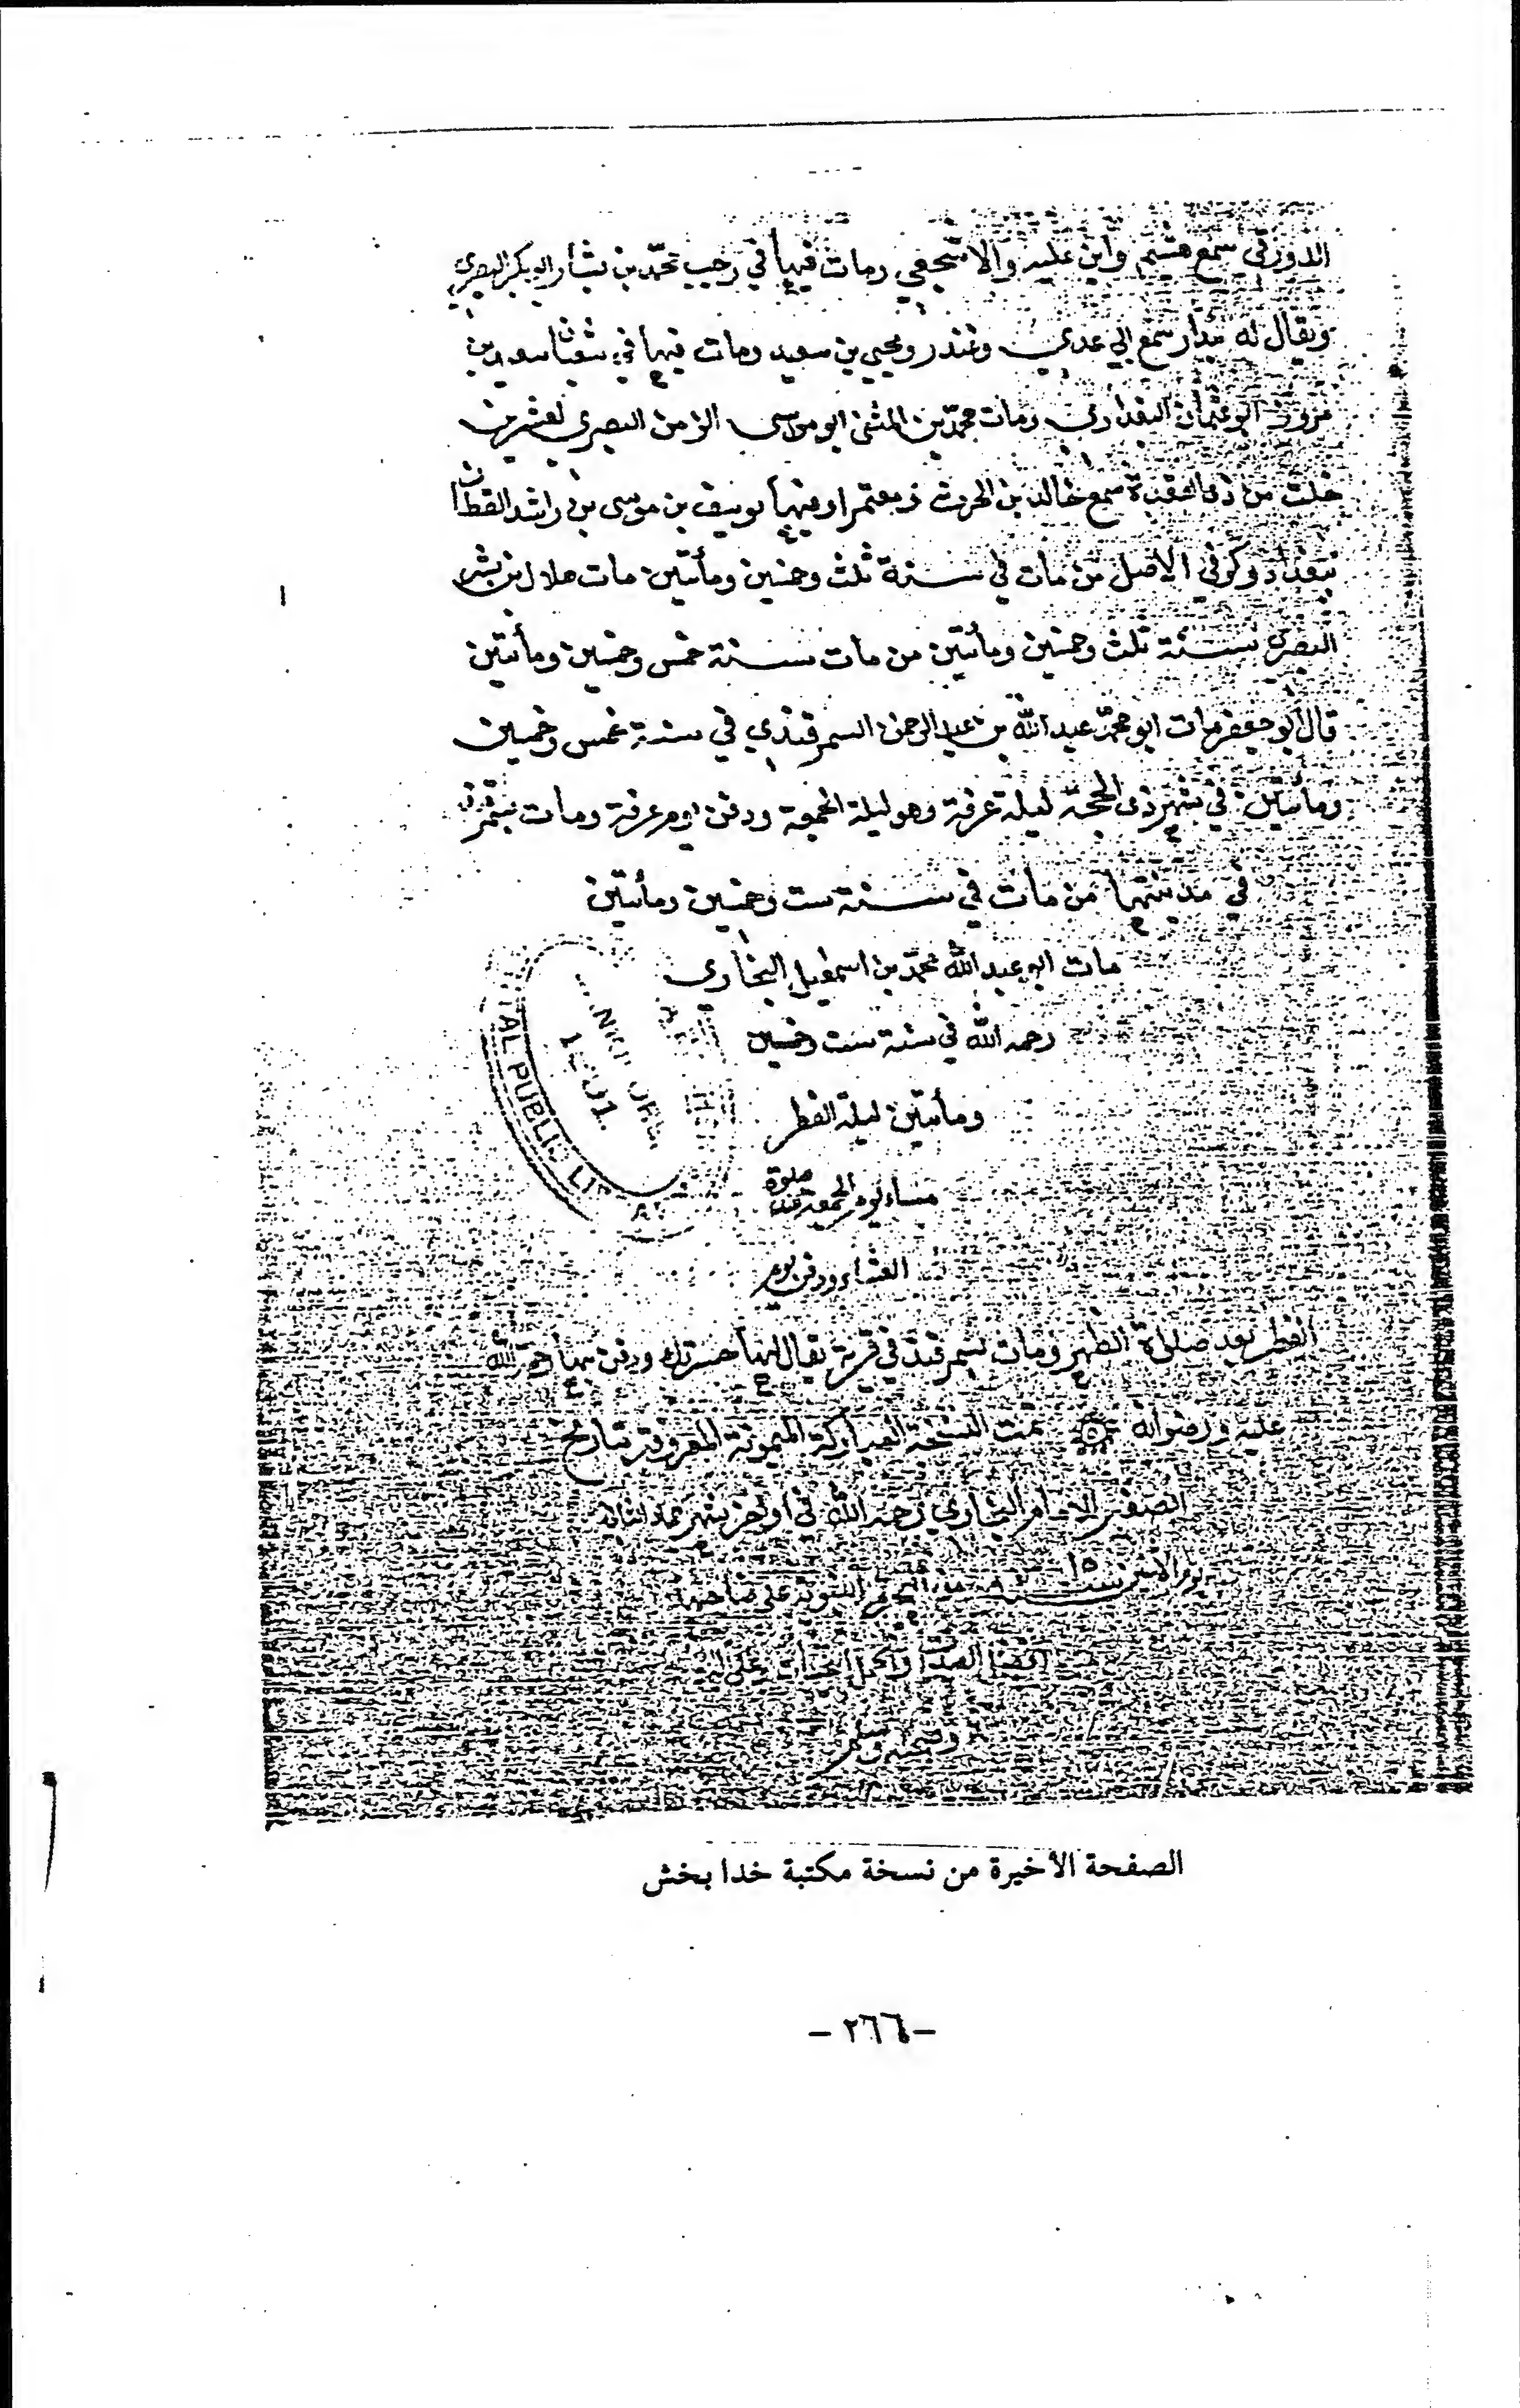 الدورقي سمع هشيم وابن عليه والاشجعي ومات فيها في رجب محمد بن بشار ابو بكر البصري
ويقال له بندار سمع ابي عدي وغندر ويحيى بن سعيد ومات فيها في شعبان سعيد بن
ابو عثمان البغدادي ومات محمد بن المثنى ابو موسى الزمن البصري لعشر بقين
خلت من ذي القعدة سمع خالد بن الحرث ومعتمرا وفيها يوسف بن موسى بن راشد القطان
ببغداد وكوفي الاصل من مات في سنة ثلث وخمسين ومأتين مات هلال بن بشر
البصري سنة ثلث وخمسين ومأتين من مات سنة خمس وخمسين ومأتين
قال ابو جعفر مات ابو محمد عبد الله بن عبد الرحمن السمرقندي في سنة خمس وخمسين
ومأتين في شهر ذي الحجة ليلة عرفة وهو ليلة الجمعة ودفن يوم عرفة ومات بسمرقند
في مدينتها من مات في سنة ست وخمسين ومأتين
مات ابو عبد الله محمد بن اسمعيل البخاري
رحمه الله في سنة ست وخمسين
ومأتين ليلة الفطر
مساء يوم الجمعة عند صلوة
العشاء ودفن يوم
الفطر بعد صلاة الظهر ومات بسمرقند في قرية يقال لها خرتنك ودفن بها رحمة الله
عليه ورضوانه تمت النسخة المباركة الميمونة المعروفة بتاريخ
الصغير للامام البخاري رحمه الله في اواخر شهر
يوم الاثنين الهجرة النبوية على صاحبها
افضل
وصحبه وسلم
TAL PUBLIC LI
الصفحة الأخيرة من نسخة مكتبة خدا بخش
— ٢٦٦ —